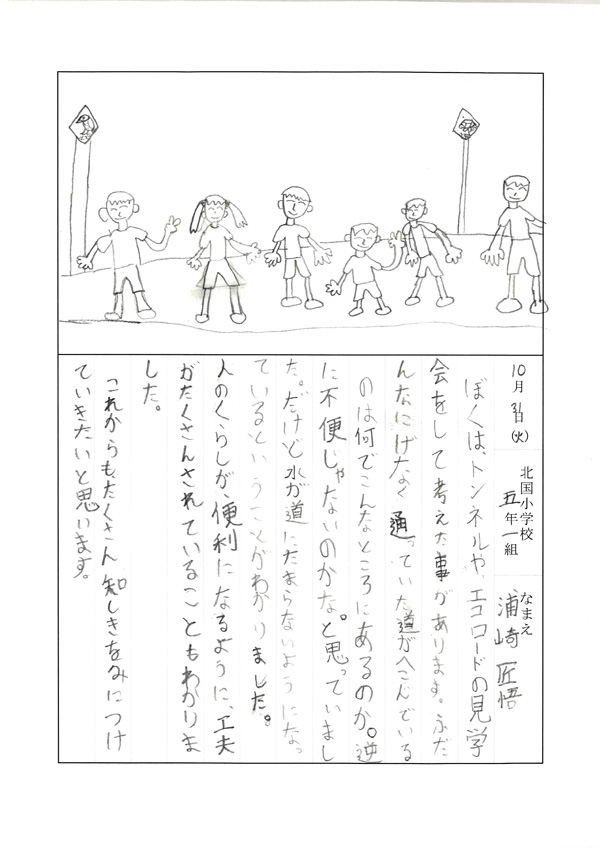 10月31日(火) 北国小学校 五年一組 なまえ 浦崎 匠悟
ぼくは、トンネルや、エコロードの見学
会をして考えた事があります。ふだ
んなにげなく通っていた道がへこんでいる
のは何でこんなところにあるのか。逆
に不便じゃないのかな。と思っていまし
た。だけど水が道にたまらないようになっ
ているということがわかりました。
人のくらしが、便利になるように、工夫
がたくさんされていることもわかりま
した。
これからも、たくさん知しきをみにつけ
ていきたいと思います。